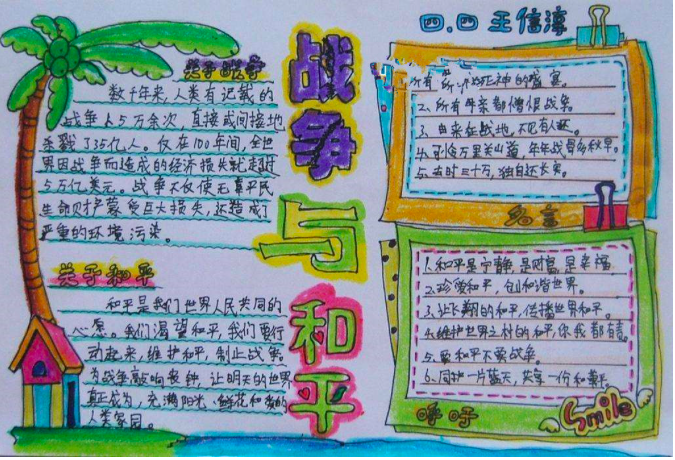 四.四 王信淳
战争与和平
关于战争
数千年来,人类有记载的
战争占5万余次,直接或间接地
杀戮了35亿人。仅在100年间,全世
界因战争而造成的经济损失就超过
5万亿美元。战争不仅使无辜平民
生命财产蒙受巨大损失,还造成了
严重的环境污染。
关于和平
和平是我们世界人民共同的
心愿。我们渴望和平,我们要行
动起来,维护和平,制止战争。
为战争敲响丧钟,让明天的世界
真正成为,充满阳光、鲜花和爱的
人类家园。
死神的盛宴。
2、所有母亲都憎恨战争。
3、由来征战地,不见有人还。
万里关山道,年年战骨多秋草。
5、去时三十万,独自还长安。
名言
1.和平是宁静,是财富,是幸福
2.珍爱和平,创和谐世界。
3.让飞翔的和平,传播世界和平。
4.维护世界之村的和平,你我都有责。
5.要和平不要战争。
6.同护一片蓝天,共享一份和平
呼吁
Smile